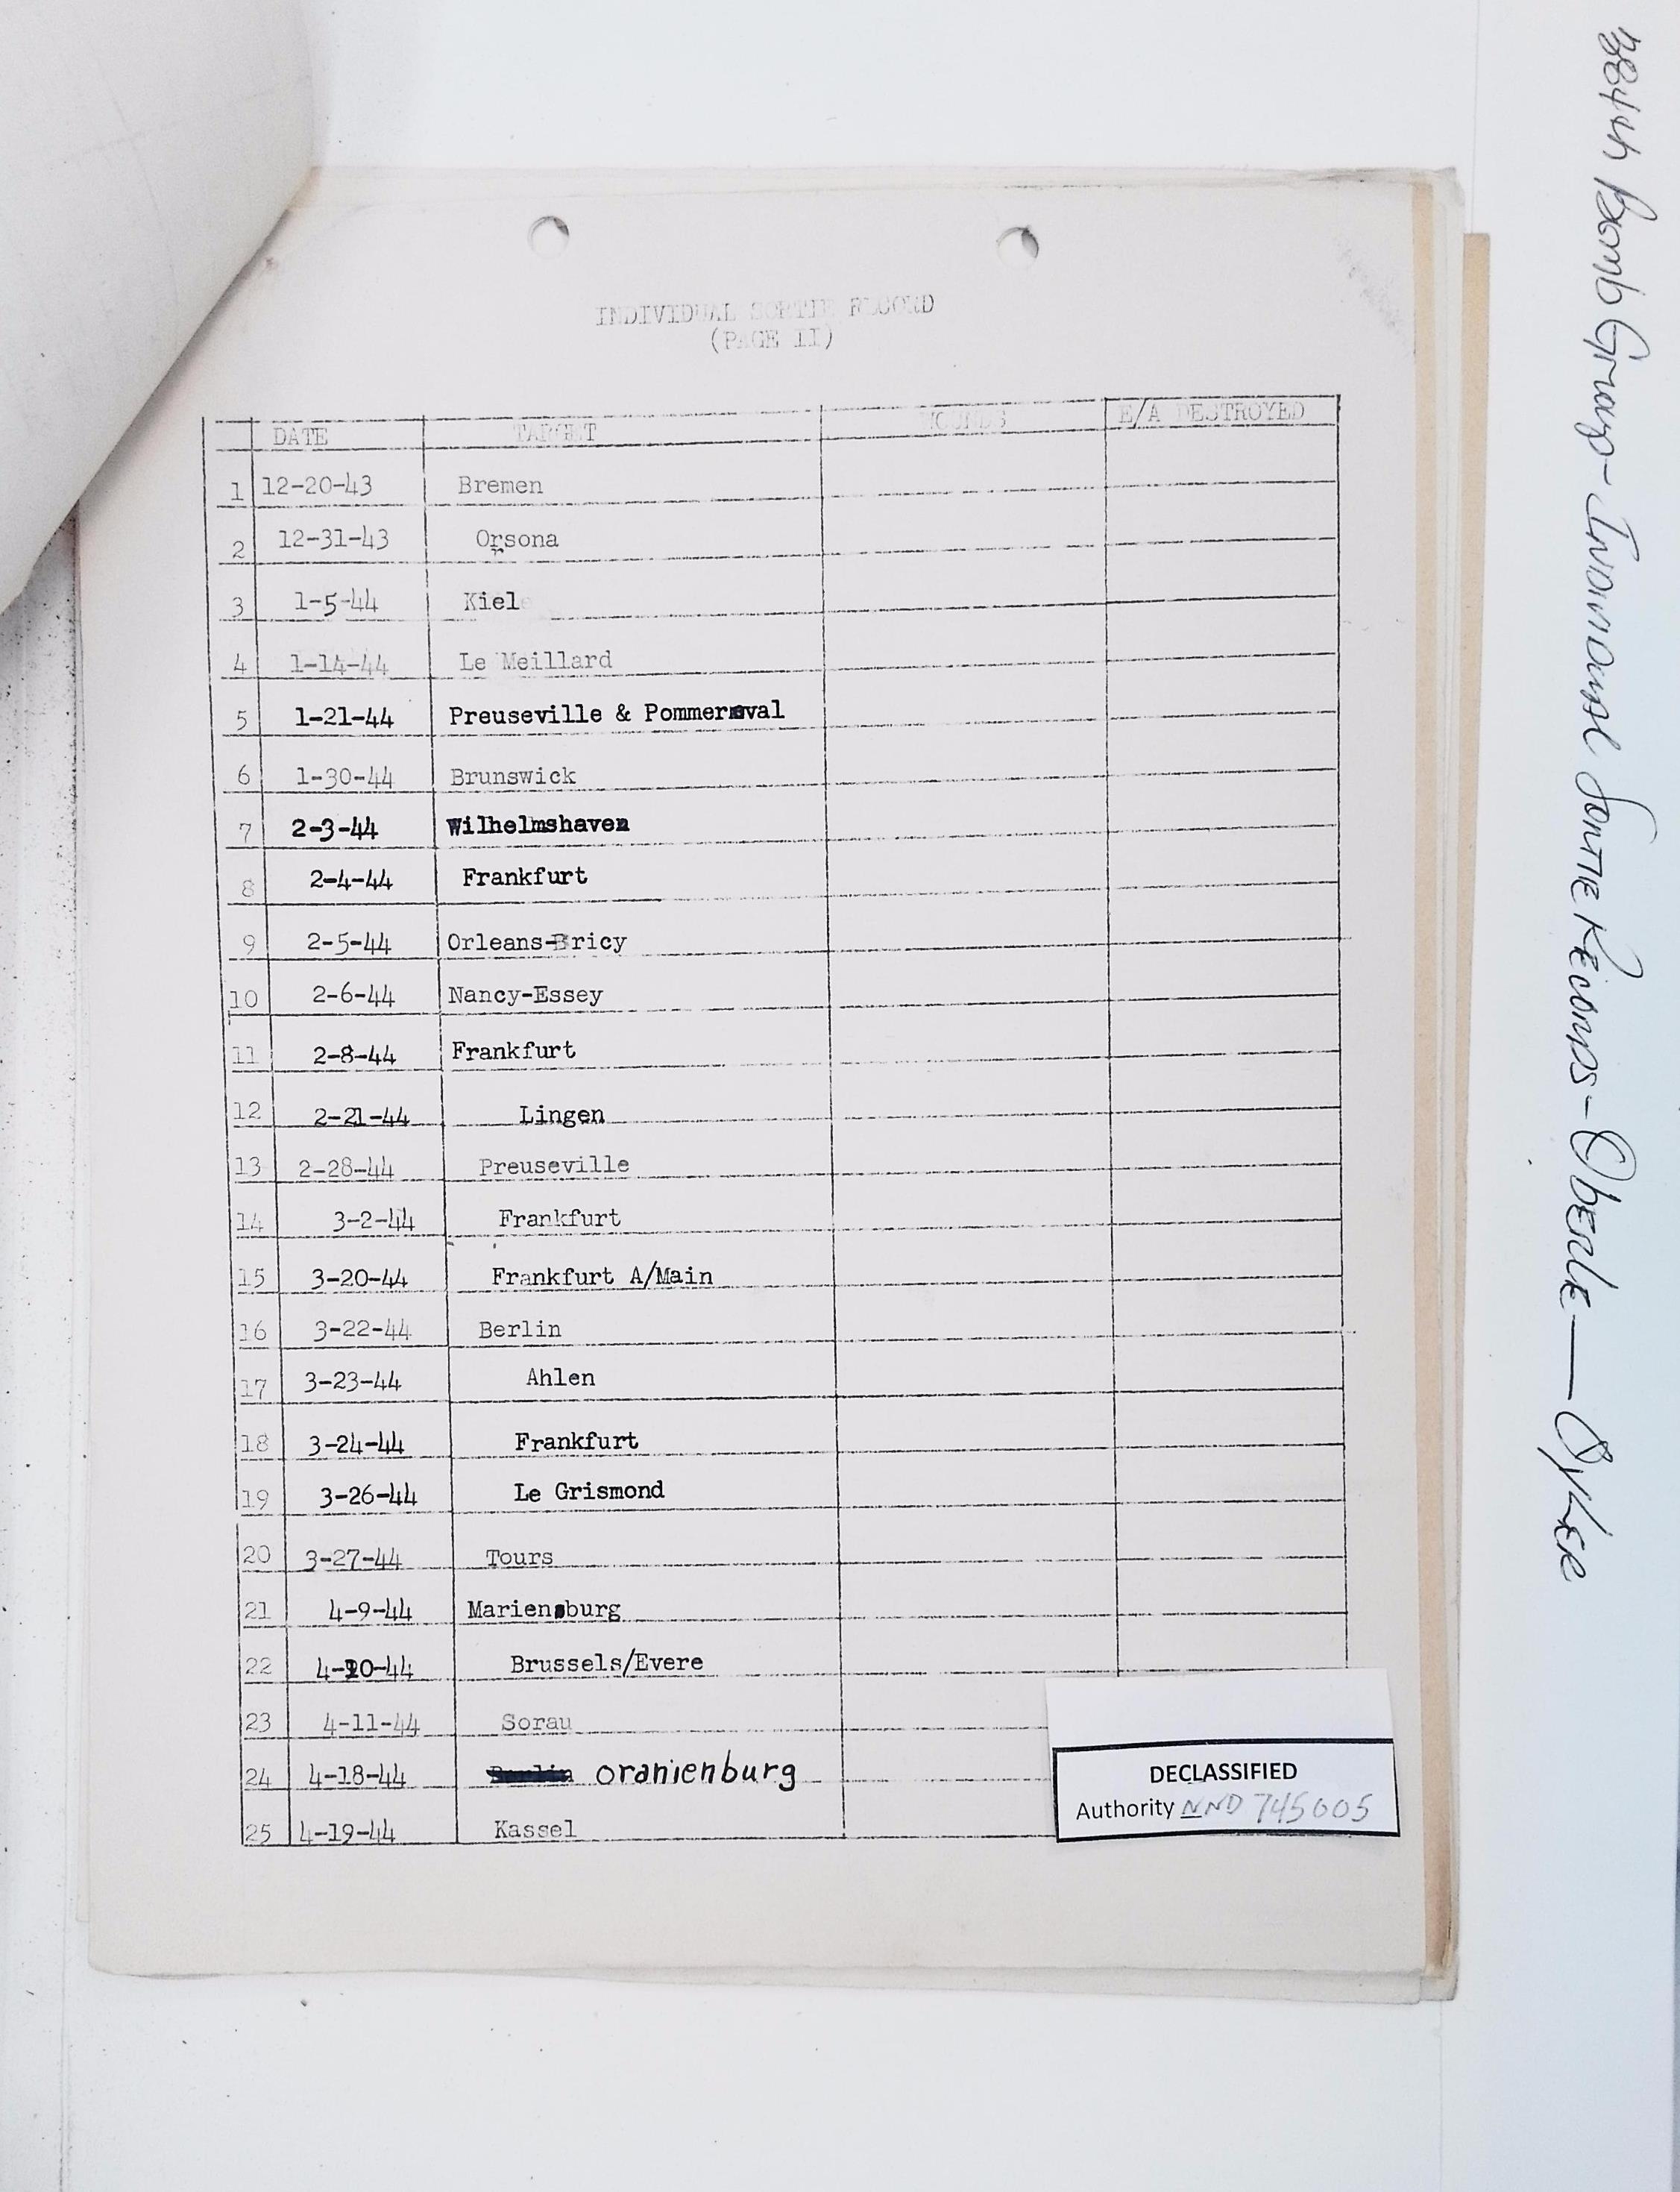 INDIVIDUAL SORTIE RECORD
(PAGE II)
DATE TARGET WOUNDS E/A DESTROYED
1 12-20-43 Bremen
2 12-31-43 Orsona
3 1-5-44 Kiel
4 1-14-44 Le Meillard
5 1-21-44 Preuseville & Pommereval
6 1-30-44 Brunswick
7 2-3-44 Wilhelmshaven
8 2-4-44 Frankfurt
9 2-5-44 Orleans-Bricy
10 2-6-44 Nancy-Essey
11 2-8-44 Frankfurt
12 2-21-44 Lingen
13 2-28-44 Preuseville
14 3-2-44 Frankfurt
15 3-20-44 Frankfurt A/Main
16 3-22-44 Berlin
17 3-23-44 Ahlen
18 3-24-44 Frankfurt
19 3-26-44 Le Grismond
20 3-27-44 Tours
21 4-9-44 Marienburg
22 4-10-44 Brussels/Evere
23 4-11-44 Sorau
24 4-18-44 oranienburg
25 4-19-44 Kassel
DECLASSIFIED
Authority NND 745005
384th Bomb Group - Individual Sortie Records - Oberle — Oyler